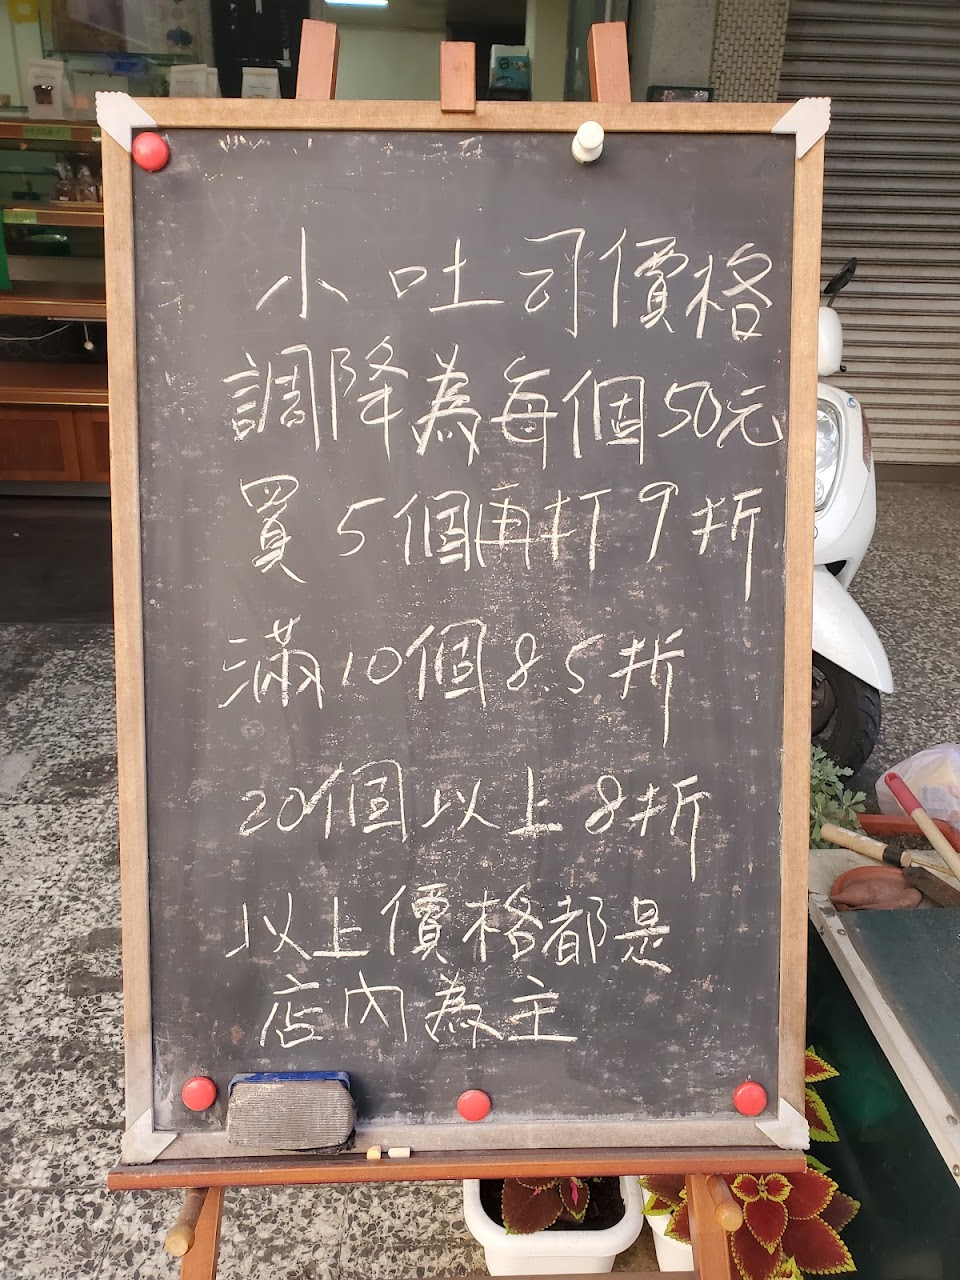 小吐司價格
調降為每個50元
買5個再打9折
滿10個8.5折
20個以上8折
以上價格都是
店內為主